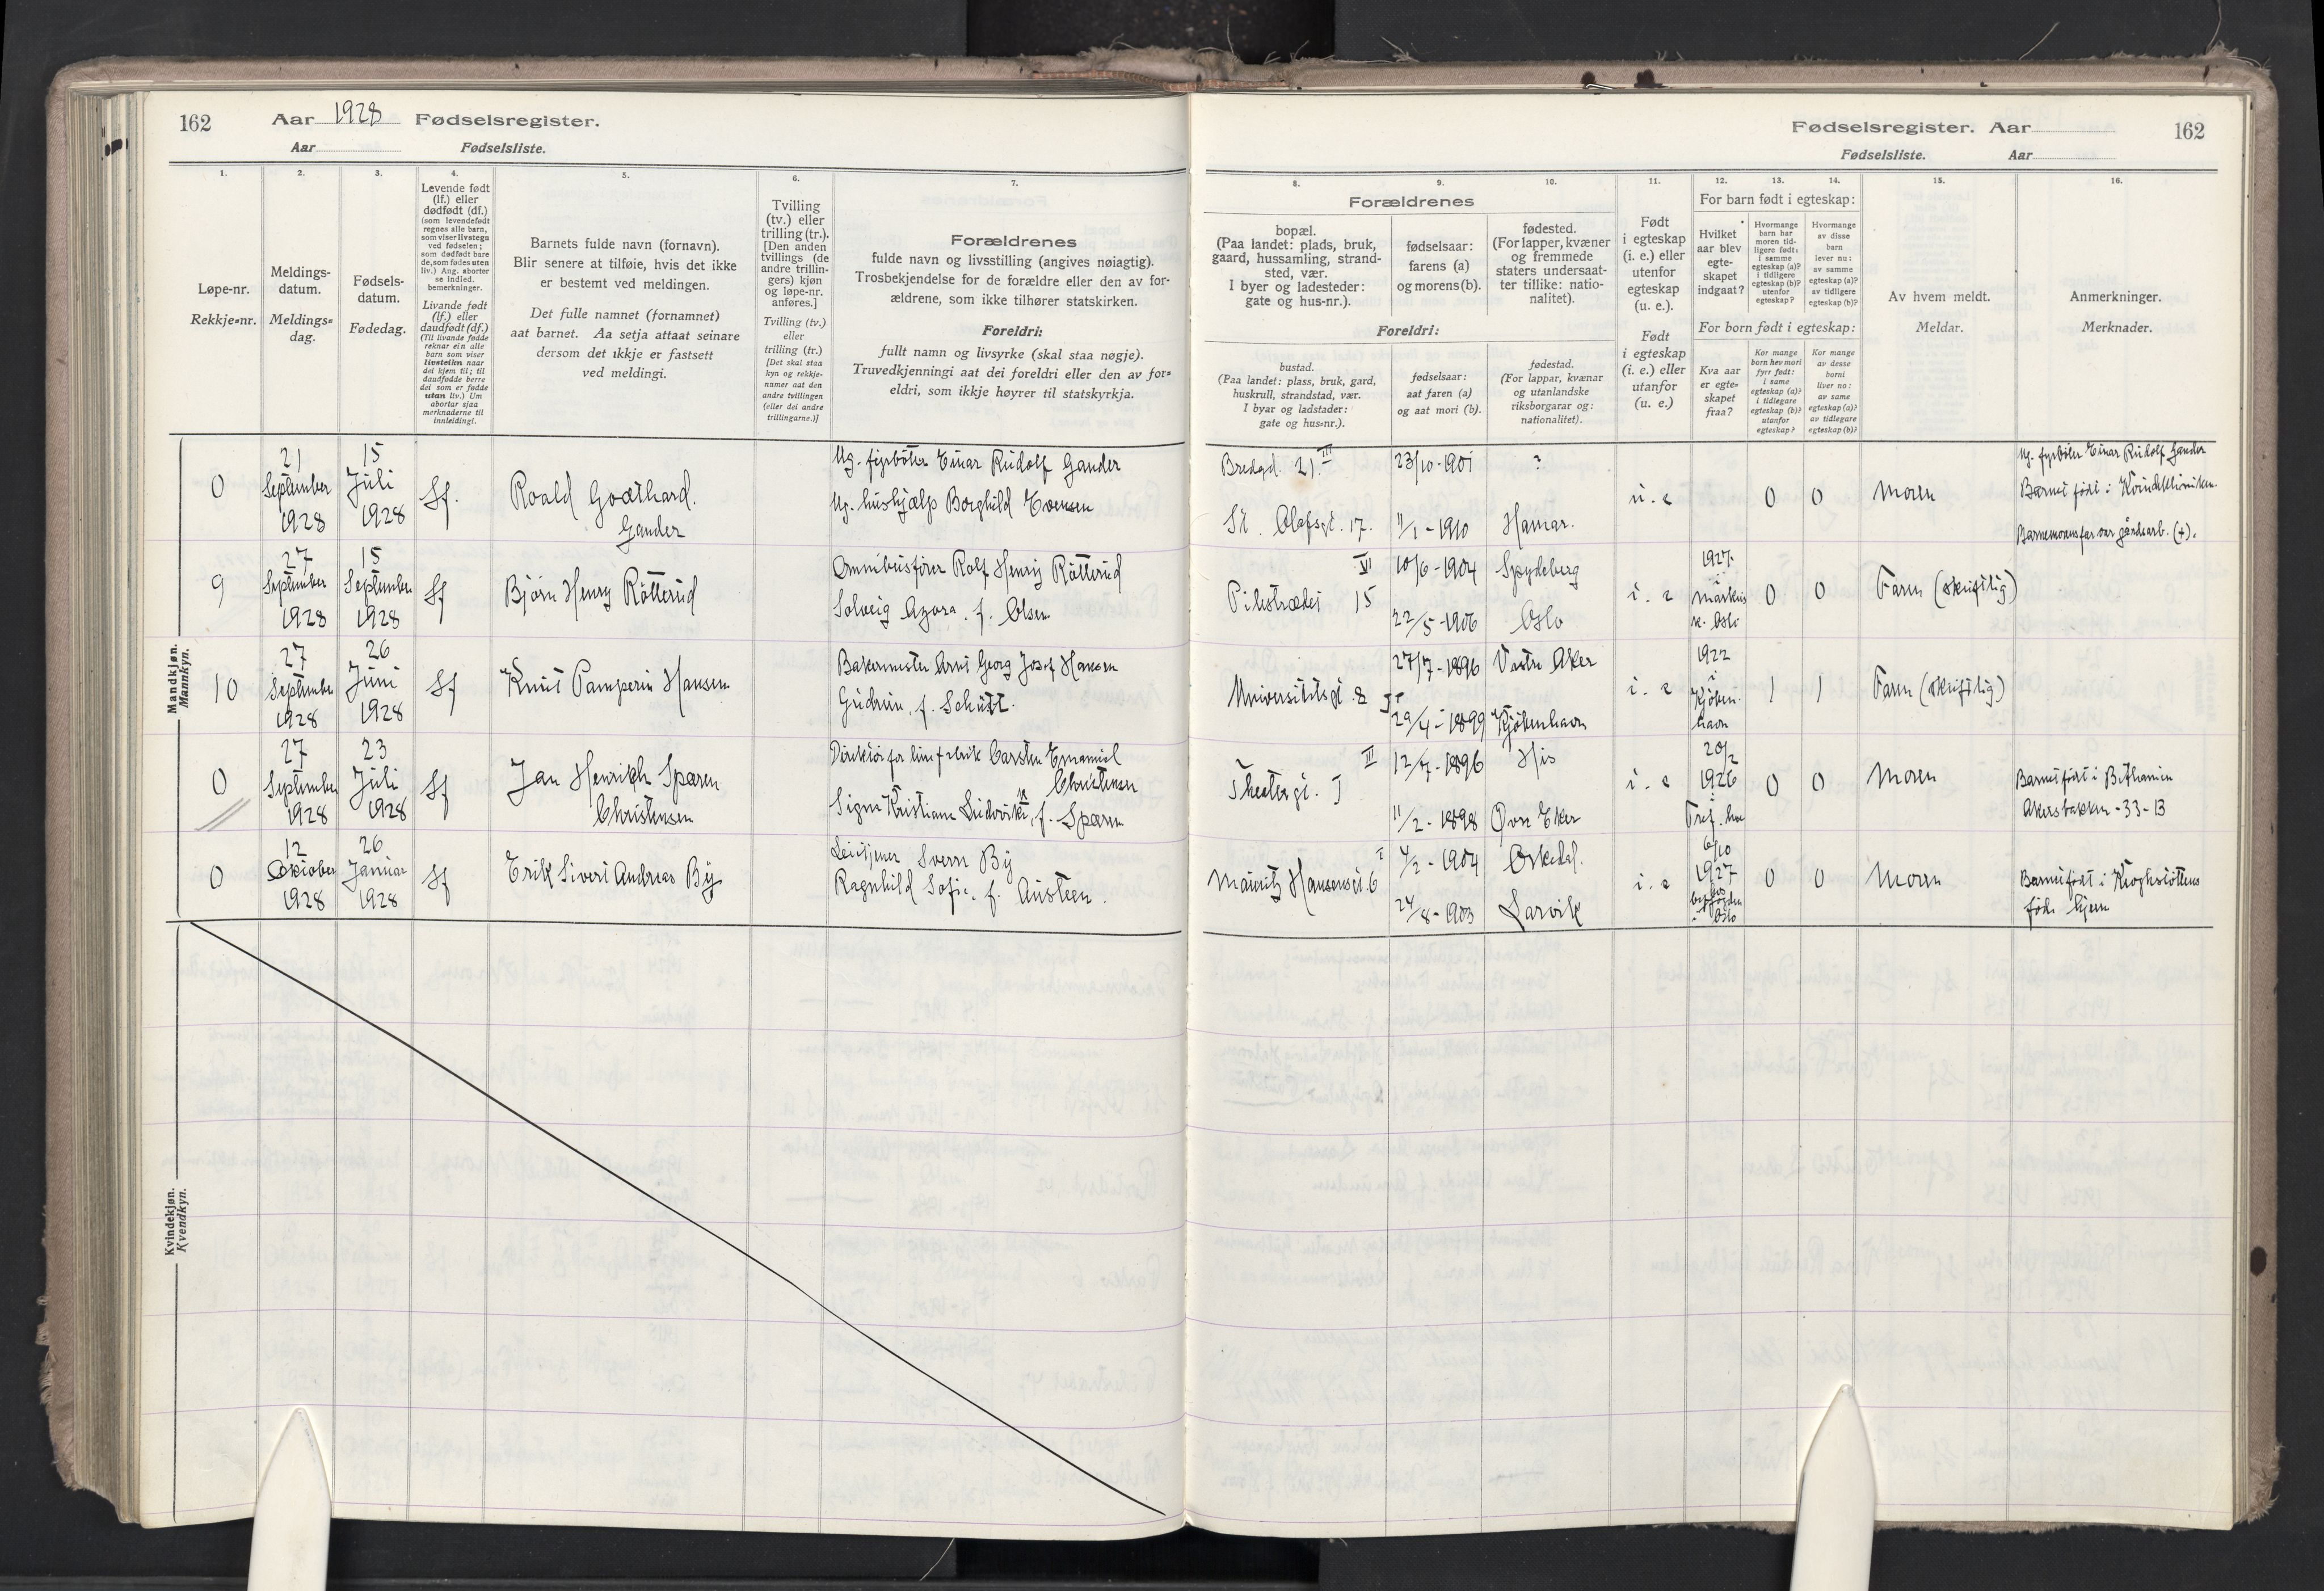 162
Aar 1928 Fødselsregister.
Aar Fødselsliste.
1.
2.
3.
4.
5.
6.
7.
Løpe-nr.
Rekkje=nr.
Meldings-
datum.
Meldings=
dag.
Fødsels-
datum.
Fødedag.
Levende født
(lf.) eller
dødfødt (df.)
(som levendefødt
regnes alle barn,
som viser livstegn
ved fødselen;
som dødfødt bare
de, som fødes uten
liv.) Ang. aborter
se indled.
bemerkninger.
Livande født
(lf.) eller
daudfødt (df.)
(Til livande fødde
reknar ein alle
barn som viser
livsteikn naar
dei kjem til; til
daudfødde berre
dei som er fødde
utan liv.) Um
abortar sjaa
merknaderne til
innleidingi.
Barnets fulde navn (fornavn).
Blir senere at tilføie, hvis det ikke
er bestemt ved meldingen.
Det fulle namnet (fornamnet)
aat barnet. Aa setja attaat seinare
dersom det ikkje er fastsett
ved meldingi.
Tvilling
(tv.) eller
trilling (tr.).
[Den anden
tvillings (de
andre trillin-
gers) kjøn
og løpe-nr.
anføres.]
Tvilling (tv.)
eller
trilling (tr.)
[Det skal staa
kyn og rekkje-
numer aat den
andre tvillingen
(eller dei andre
trillingarne.)]
Forældrenes
fulde navn og livsstilling (angives nøiagtig).
Trosbekjendelse for de forældre eller den av for-
ældrene, som ikke tilhører statskirken.
Foreldri:
fullt namn og livsyrke (skal staa nøgje).
Truvedkjenningi aat dei foreldri eller den av for=
eldri, som ikkje høyrer til statskyrkja.
Mandkjøn.
Mannkyn.
0
21
September
1928
15
Juli
1928
Lf.
Roald Godthard.
Gander
Ug. fyrbøter Einar Rudolf Gander
Ug. hushjælp Borghild Evensen
9
27
September
1928
15
September
1928
Lf
Bjørn Henry Røtterud
Omnibusfører Rolf Henry Røtterud
Solveig Azora. f. Olsen
10
27
September
1928
26
Juni
1928
Lf
Knut Pamperin Hansen
Bakermester Arnt Georg Josef Hansen
Gudrun, f. Schütt.
0
27
September
1928
23
Juli
1928
Lf
Jan Henrikh Sparen
Christensen
Direktør for limfabrik Carsten Emanuel
Christensen
Signe Kristiane Ludovikke, f. Sparen
0
12
Oktober
1928
26
Januar
1928
Lf
Erik Sivert Andreas By
Sverre By
Ragnhild Sofie. f. Austeen.
Kvindekjøn.
Kvendkyn.
Fødselsregister. Aar 162
Fødselsliste. Aar
8.
9.
10.
11.
12.
13.
14.
15.
16.
Forældrenes
bopæl.
(Paa landet: plads, bruk,
gaard, hussamling, strand-
sted, vær.
I byer og ladesteder:
gate og hus-nr.).
fødselsaar:
farens (a)
og morens (b).
fødested.
(For lapper, kvæner
og fremmede
staters undersaat-
ter tillike: natio-
nalitet).
Foreldri:
bustad.
(Paa landet: plass, bruk, gard,
huskrull, strandstad, vær.
I byar og ladstader:
gate og hus=nr.).
fødselsaar:
aat faren (a)
og aat mori (b).
fødestad.
(For lappar, kvænar
og utanlandske
riksborgarar og:
nationalitet).
Født
i egteskap
(i. e.) eller
utenfor
egteskap
(u. e.).
Født
i egteskap
(i. e.) eller
utanfor
(u. e.)
For barn født i egteskap:
Hvilket
aar blev
egte-
skapet
indgaat?
Hvormange
barn har
moren tid-
ligere født:
i samme
egteskap (a)?
i tidligere
egteskap (b)?
utenfor
egteskap?
Hvormange
av disse
barn
lever nu:
av samme
egteskap (a)?
av tidligere
egteskap (b)?
For born født i egteskap:
Kva aar
er egte=
skapet
fraa?
Kor mange
born hev mori
fyrr født:
i same
egteskap (a)?
i tidlegare
egteskap (b)?
utanfor
egteskap?
Kor mange
av desse
borni
liver no:
av same
egteskap (a)?
av tidlegare
egteskap (b)?
Av hvem meldt.
Meldar.
Anmerkninger.
Merknader.
Bredgt. 21 III
St. Olafsgt. 17.
23/10-1901
11/1-1910
?
Hamar.
u. e
0
0
Moren
Ug. fyrbøter Einar Rudolf Gander
Barnet født i Kvindeklinikken.
Barnemorens far var gårdsarb. (+).
Pilestrædet 15 VI
10/6-1904
22/5-1906
Spydeberg
Oslo
i. e
1927
i
Markus
k. Oslo
0
0
Faren (skriftlig)
Universitetsgt. 8
27/7-1896
29/4-1899
Vestre Aker
Kjøbenhavn
i. e
1922
i
Kjøben-
havn
1
1
Faren (skriftlig)
Theatergt. 1 III
12/7-1896
11/2-1898
His
Øvre Eker
i. e
20/2
1926
i
Tref. k
0
0
Moren
Barnet født i Bethanien
Akersbakken - 33 - 13
Mauritz Hansensgt. 6 I
4/2-1904
24/8-1903
Askedal.
Larvik
i. e
6/10
1927
hos
byfogden
i Oslo
0
0
Moren
Barnet født i Kroghstøttens
føde hjem